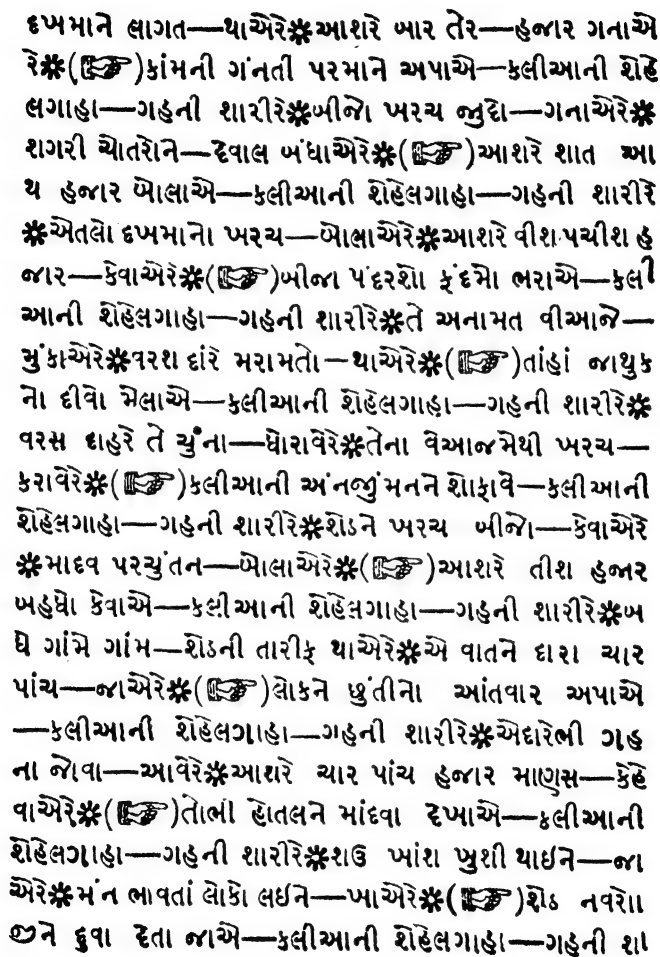 દખમાને લાગત—થાએરે❋આશરે બાર તેર—હજાર ગનાએ
રે❋(☞)કાંમની ગંનતી પરમાને અપાએ—કલીઆની શેહે
લગાહા—ગહની શારીરે❋બીજો ખરચ જુદો—ગનાએરે❋
શગરી ચોતરોને—દેવાલ બંધાએરે❋(☞)આશરે શાત આ
થ હજાર બોલાએ—કલીઆની શેહેલગાહા—ગહની શારીરે
❋એતલો દખમાનો ખરચ—બોલાએરે❋આશરે વીશ પચીશ હ
જાર—કેવાએરે❋(☞)બીજા પંદરશો ફંદમો ભરાએ—કલી
આની શેહેલગાહા—ગહની શારીરે❋તે અનામત વીઆજે—
મુંકાએરે❋વરશ દાંરે મરામતો—થાએરે❋(☞)તાંહાં જાથુક
નો દીવો મેલાએ—કલીઆની શેહેલગાહા—ગહની શારીરે❋
વરસ દાહરે તે ચુંના—ધોરાવેરે❋તેના વેઆજમેથી ખરચ—
કરાવેરે❋(☞)કલીઆની અંનજુંમનને શોફાવે—કલીઆની
શેહેલગાહા—ગહની શારીરે❋શેડને ખરચ બીજો—કેવાએરે
❋માદવ પરચુંતન—બોલાએરે❋(☞)આશરે તીશ હજાર
બહધો કેવાએ—કલીઆની શેહેલગાહા—ગહની શારીરે❋બ
ધે ગાંમે ગાંમ—શેડની તારીફ થાએરે❋એ વાતને દારા ચાર
પાંચ—જાએરે❋(☞)લોકને છુંતીના આંતવાર અપાએ
—કલીઆની શેહેલગાહા—ગહની શારીરે❋એદારેભી ગહ
ના જોવા—આવેરે❋આશરે ચાર પાંચ હજાર માણસ—કેહે
વાએરે❋(☞)તોભી હોતલને માંદવા દેખાએ—કલીઆની
શેહેલગાહા—ગહની શારીરે❋શઉ ખાંશ ખુશી થાઇને—જા
એરે❋મંન ભાવતાં લોકો લઇને—ખાએરે❋(☞)શેડ નવરો
જીને દુવા દેતા જાએ—કલીઆની શેહેલગાહા—ગહની શા